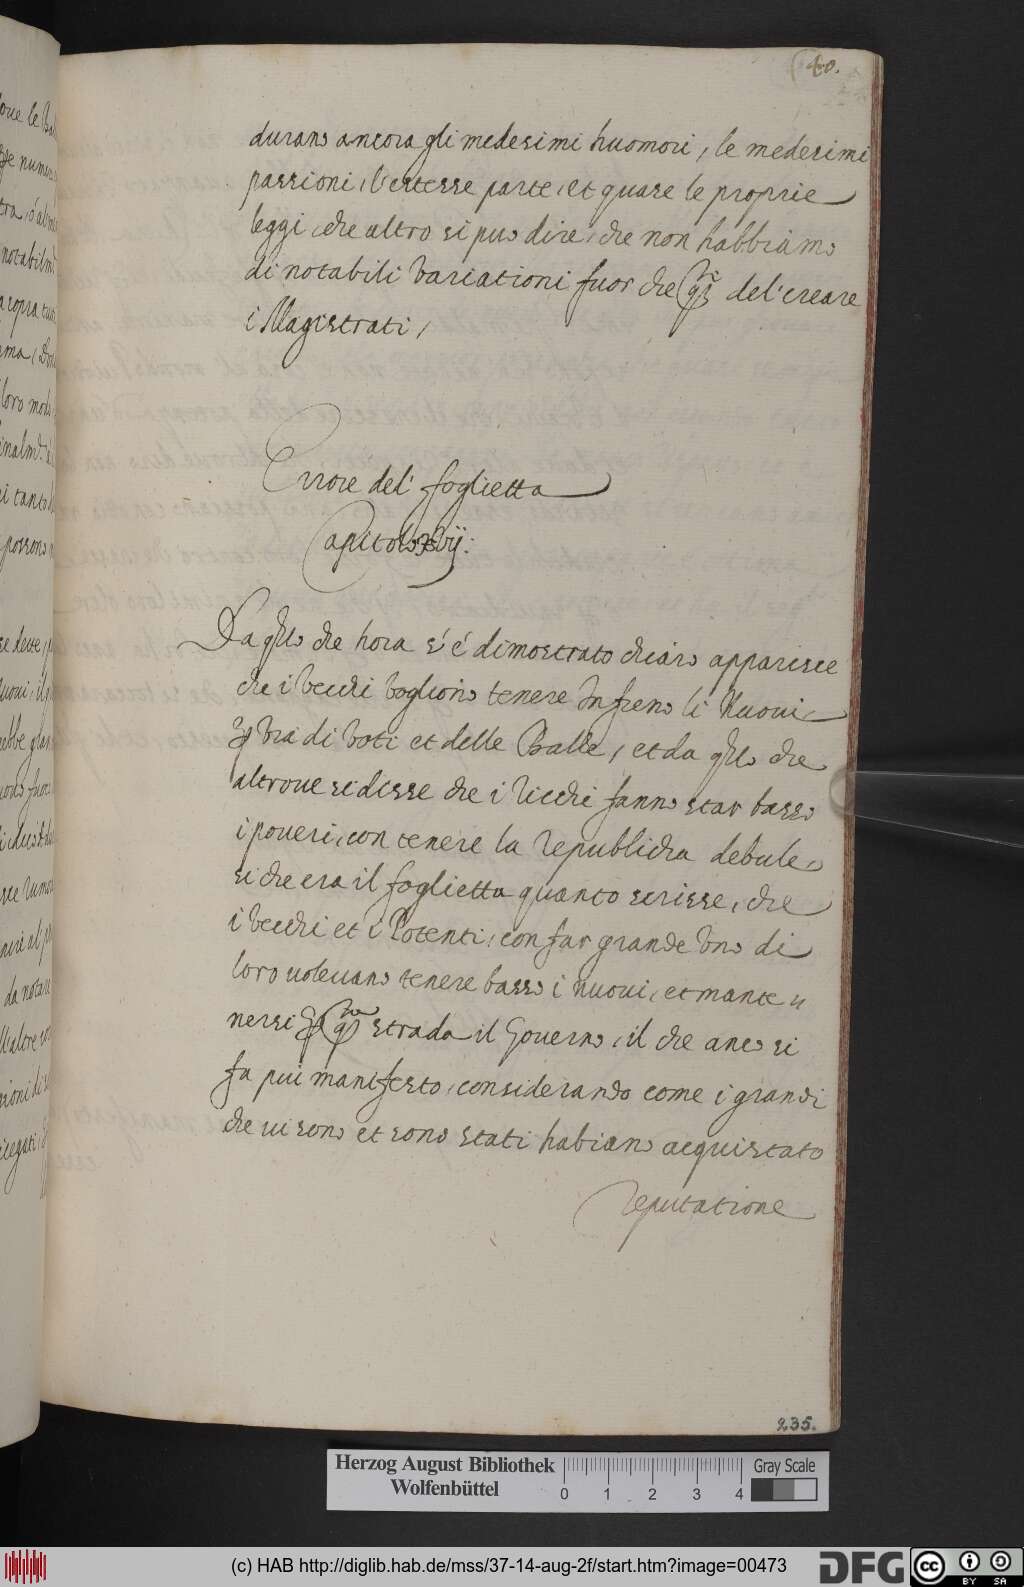 40.
durano ancora gli medesimi huomori, le medesimi
passioni, l'estesse parte, et quase le proprie
leggi, che altro si puo dire, che non habbiamo
di notabili variationi fuor che del' creare
i Magistrati,
Errore del' foglietta
Capitolo xvij:
Da qllo che hora s'é dimostrato chiaro apparisce
che i vecchi voglion̄o tenere In freno li Nuoui
ꝑ via di voti et delle Balle, et da qllo che
altroue si disse che i Ricchi fanno star basso
i poueri, con tenere la republicha debule,
si che era il foglietta quanto scrisse, che
i vecchi et i Potenti, con far grande uno di
loro uoleuano tenere basso i nuoui, et mante
nersi ꝑ qsta strada il Gouerno, il che anco si
fa piu manifesto, considerando come i grandi
che ui sono et sono stati habiano acquistato
reputatione
235.
Herzog August Bibliothek
Wolfenbüttel
0 1 2 3 4
Gray Scale
(c) HAB http://diglib.hab.de/mss/37-14-aug-2f/start.htm?image=00473
DFG
cc BY SA